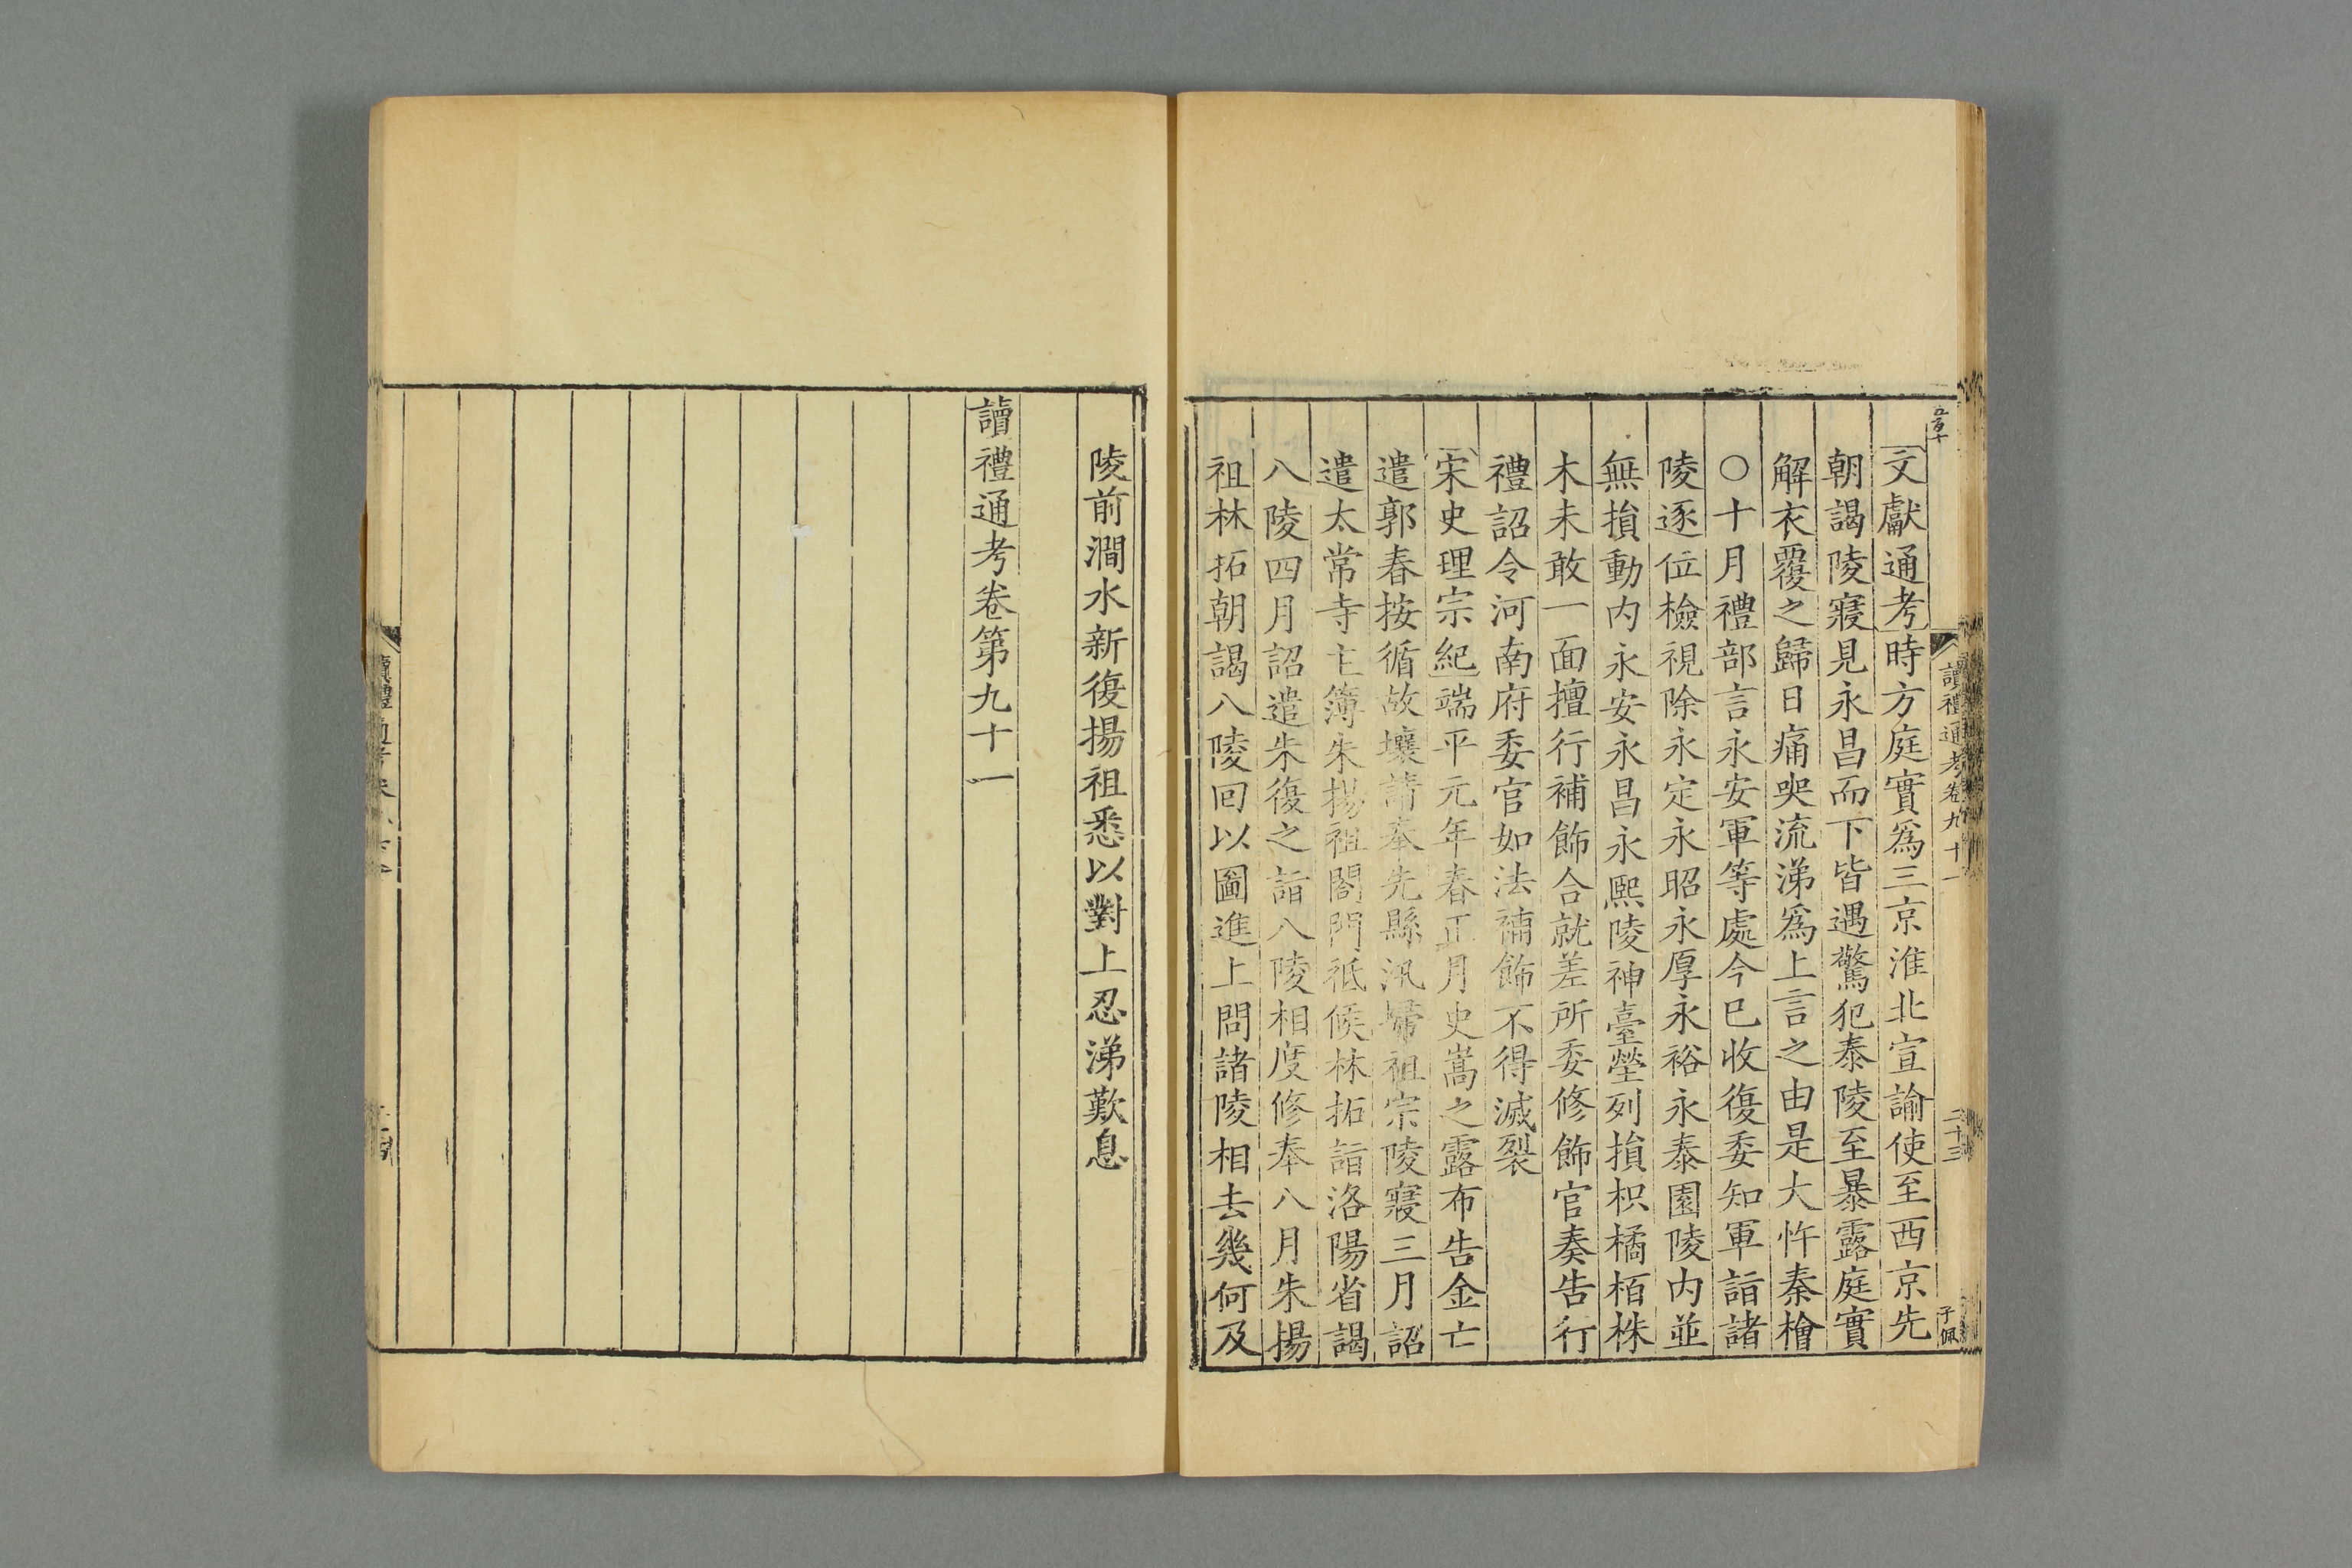 五百十
讀禮通考卷九十一
二十三
子佩
文獻通考時方庭實爲三京淮北宣諭使至西京先
朝謁陵寢見永昌而下皆遇驚犯泰陵至暴露庭實
解衣覆之歸日痛哭流涕爲上言之由是大忤秦檜
○十月禮部言永安軍等處今已收復委知軍詣諸
陵逐位檢視除永定永昭永厚永裕永泰園陵内並
無損動内永安永昌永熙陵神臺瑩列損枳橘栢株
木未敢一面擅行補飾合就差所委修飾官奏告行
禮詔令河南府委官如法補飾不得滅裂
宋史理宗紀端平元年春正月史嵩之露布告金亡
遣郭春按循故壤請奉先縣汛掃祖宗陵寢三月詔
遣太常寺主簿朱揚祖閤門祗候林拓詣洛陽省謁
八陵四月詔遣朱復之詣八陵相度修奉八月朱揚
祖林拓朝謁八陵回以圖進上問諸陵相去幾何及
陵前澗水新復揚祖悉以對上忍涕歎息
讀禮通考卷第九十一
讀禮通考